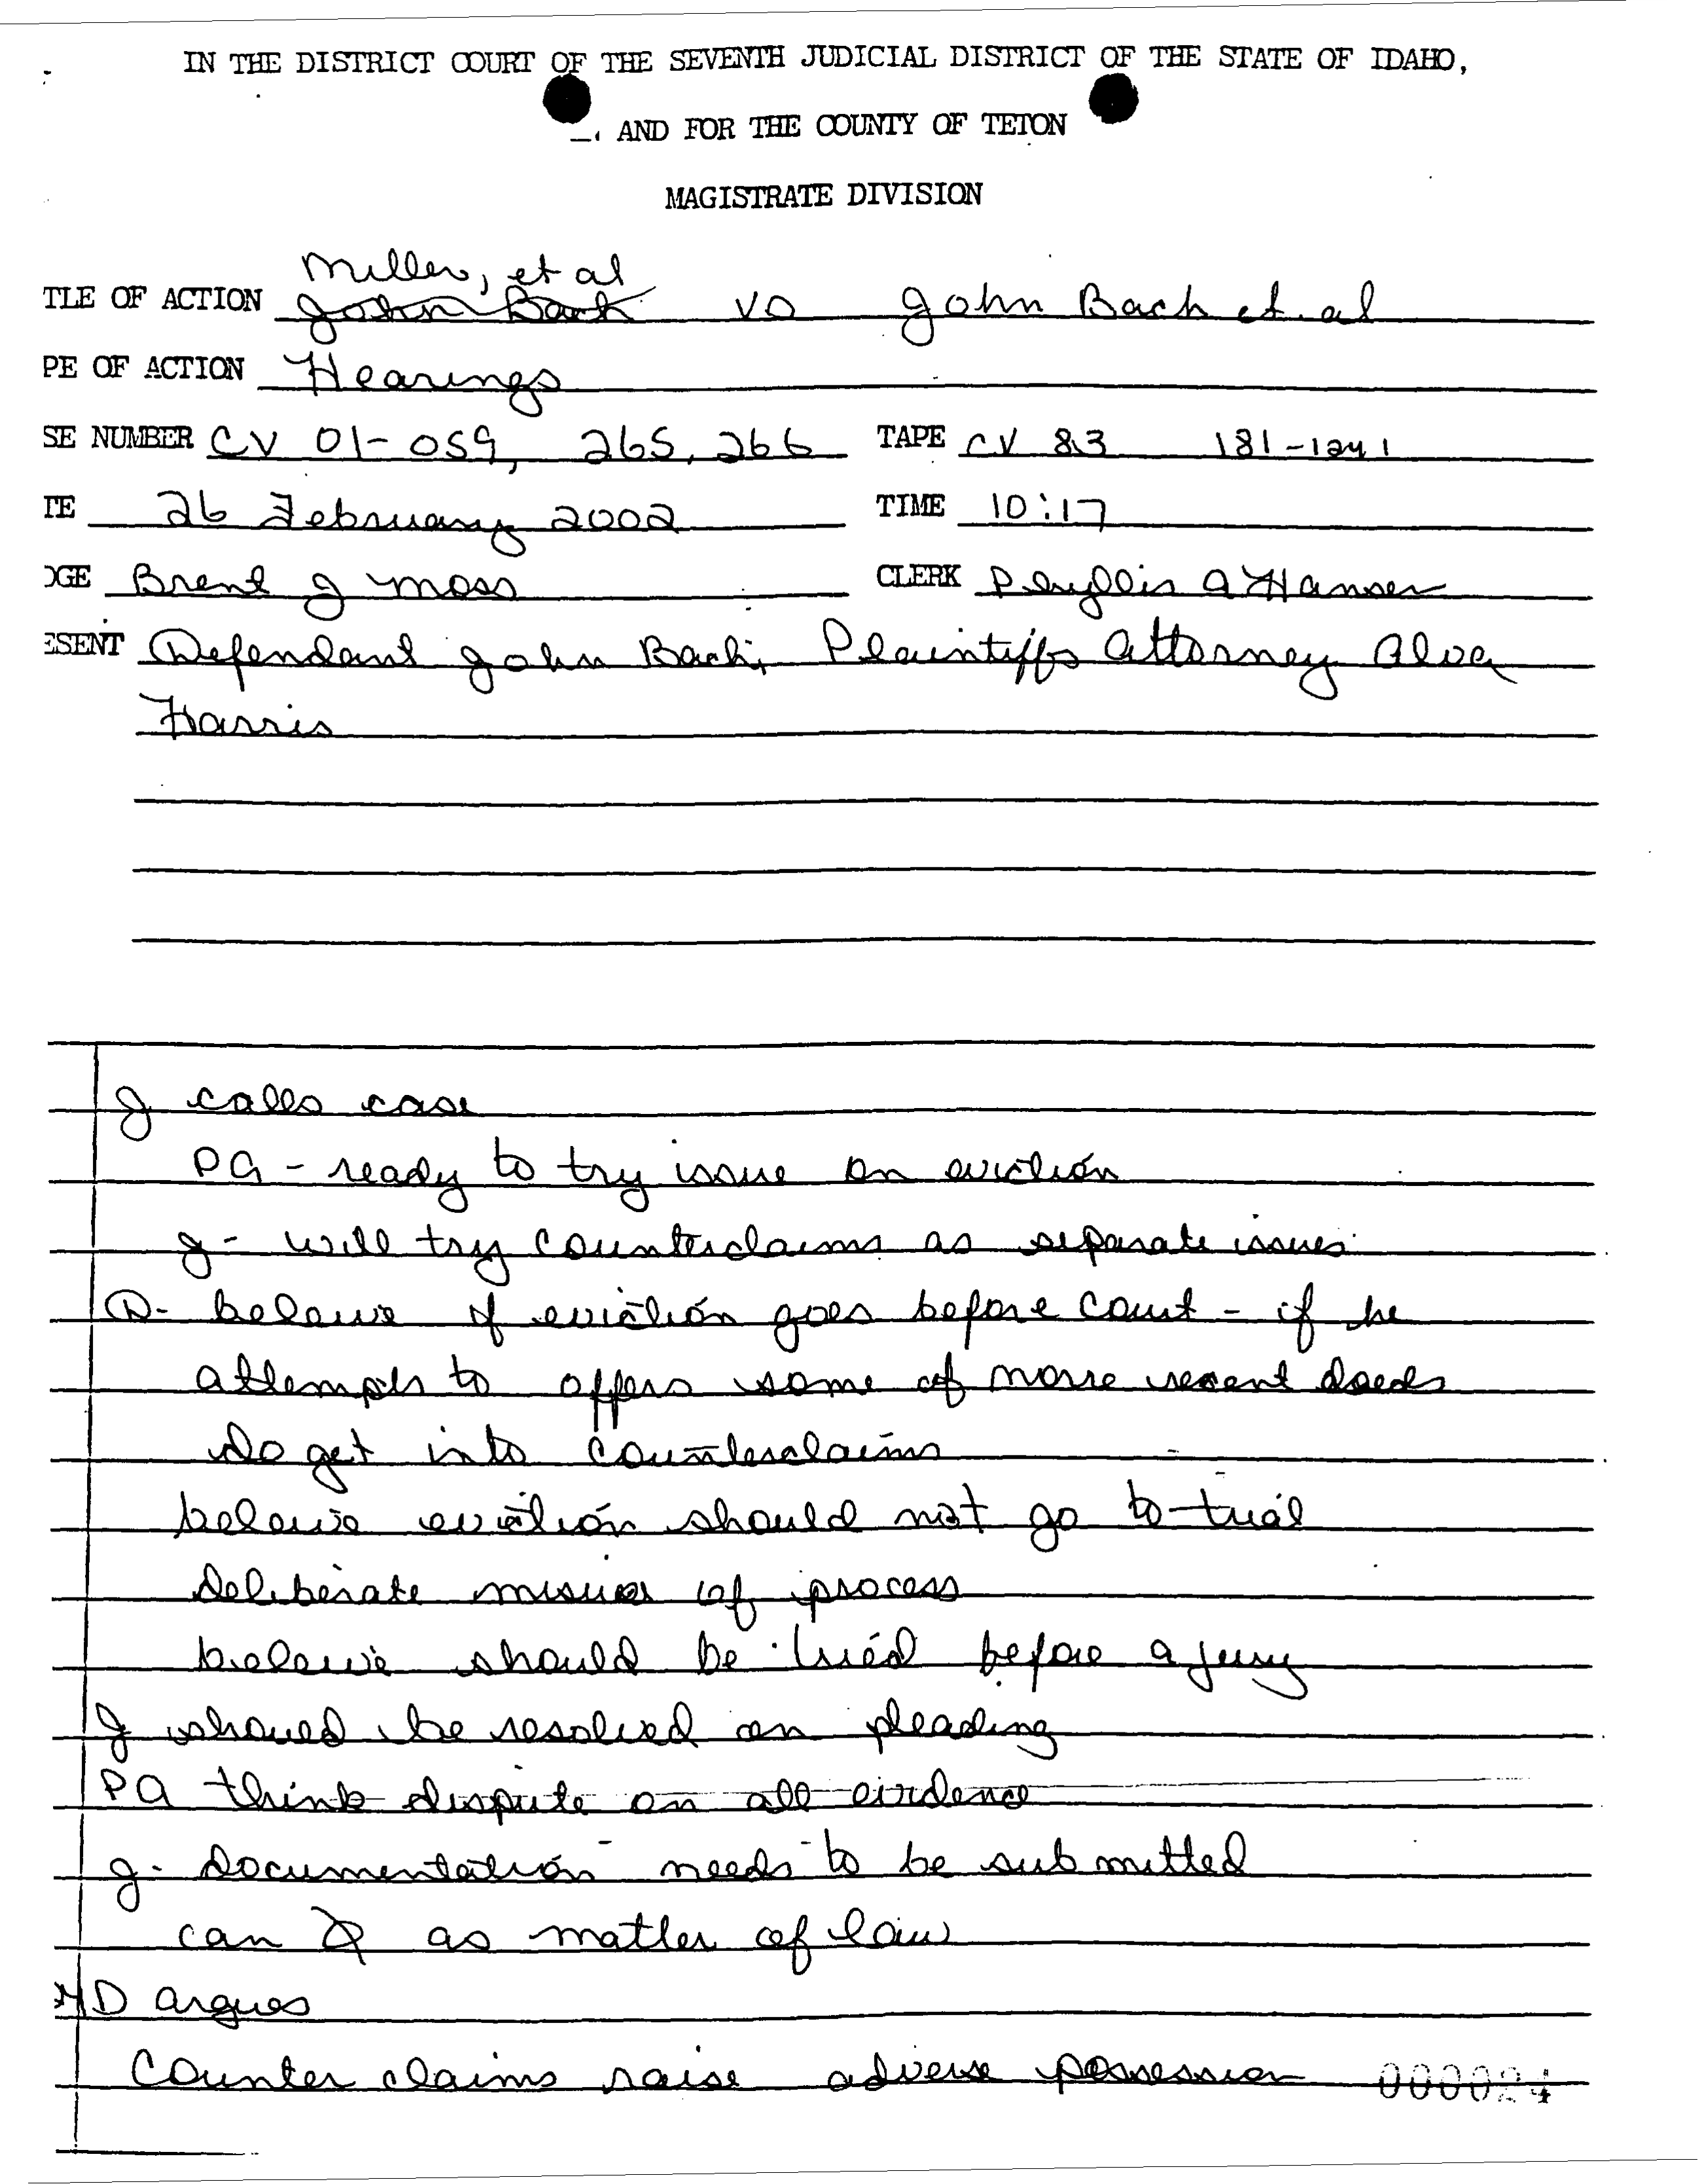 IN THE DISTRICT COURT OF THE SEVENTH JUDICIAL DISTRICT OF THE STATE OF IDAHO,
AND FOR THE COUNTY OF TETON
MAGISTRATE DIVISION
Miller, et al
TLE OF ACTION John Bach vs John Bach et al
PE OF ACTION Hearings
SE NUMBER CV 01-059, 265, 266 TAPE CV 83 181-1241
TE 26 February 2002 TIME 10:17
OGE Brent J Moss CLERK Phyllis A Hansen
ESENT Defendant John Bach; Plaintiffs Attorney Alva
Harris
J calls case
PA - ready to try issue on eviction
J - will try counterclaims as separate issues
D - beleive if eviction goes before court - if he
attempts to offers some of more recent deeds
do get into counterclaims
beleive eviction should not go to trial
deliberate misuse of process
beleive should be tried before a jury
J should be resolved on pleading
PA think dispute on all evidence
J - documentation needs to be submitted
can as matter of law
D argues
Counter claims raise adverse possession 000024